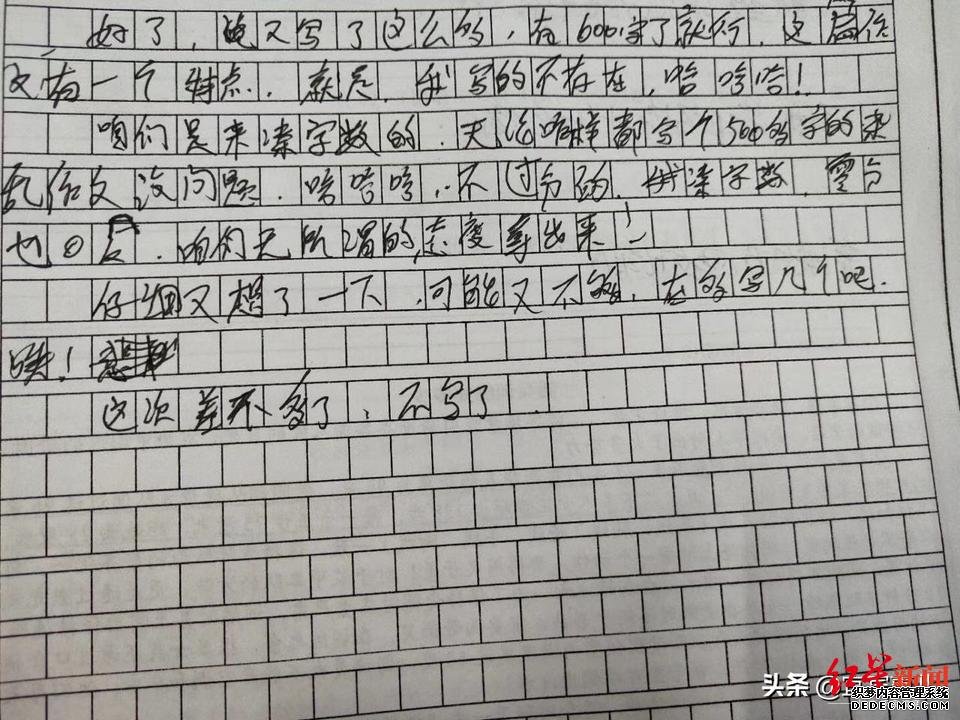 好了，咱又写了这么多，在600字了就行．这篇作
文有一个特点．就是．我写的不存在，哈哈哈！
咱们是来凑字数的．无论咋样都写个500多字的杂
乱作文没问题．哈哈哈，不过分的．供凑字数．零分
也⊙ ．咱们无所谓的态度拿出来！
仔细又想了一下．可能又不够．在多写几个吧．
咦！
这次差不多了，不写了．
红星新闻
头条
织梦内容管理系统
DEDECMS.COM